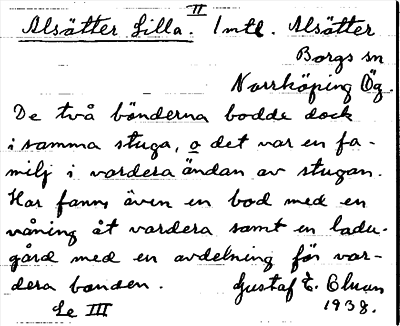 II
Alsätter Lilla. Intl. Alsätter
Borgs sn
Norrköping Ög.
De två bönderna bodde dock
i samma stuga, o det var en fa-
milj i vardera ändan av stugan.
Har fanns även en bod med en
våning åt vardera samt en ladu-
gård med en avdelning för var-
dera bonden. Gustaf E.
Se III 1938.